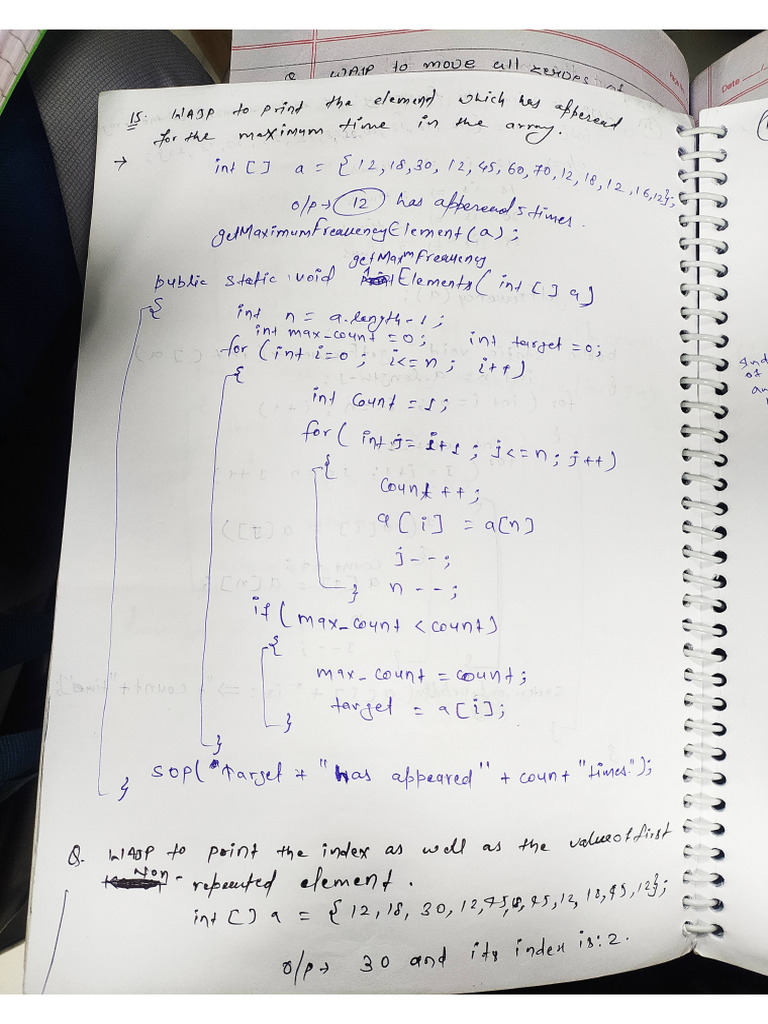 Q WAJP to move all zeroes of
Date
15. WAJP to print the element which has apperead
for the maximum time in the array.
→ int [ ] a = {12,18,30, 12,45,60,70,12,18,12,16,12};
o/p → 12 has apperead 5 times.
getMaximumFrequencyElement(a);
getMaxm Frequency
public static void Elements( int [ ] a)
{
int n = a.length-1;
int max_count =0; int target =0;
for (int i=0; i<=n; i++)
{
int count =1;
for( int j= i+1; j<=n; j++)
{
count ++;
a[i] = a[n]
j--;
} n --;
if( max_count < count)
{
max_count = count;
target = a[i];
}
}
SOP( "Target + "has appeared" + count "times");
}
Q. WAJP to print the index as well as the value of first
Non-repeated element.
int [ ] a = {12,18, 30,12,45,8,45,12,18,45,12};
o/p → 30 and its index is:2.